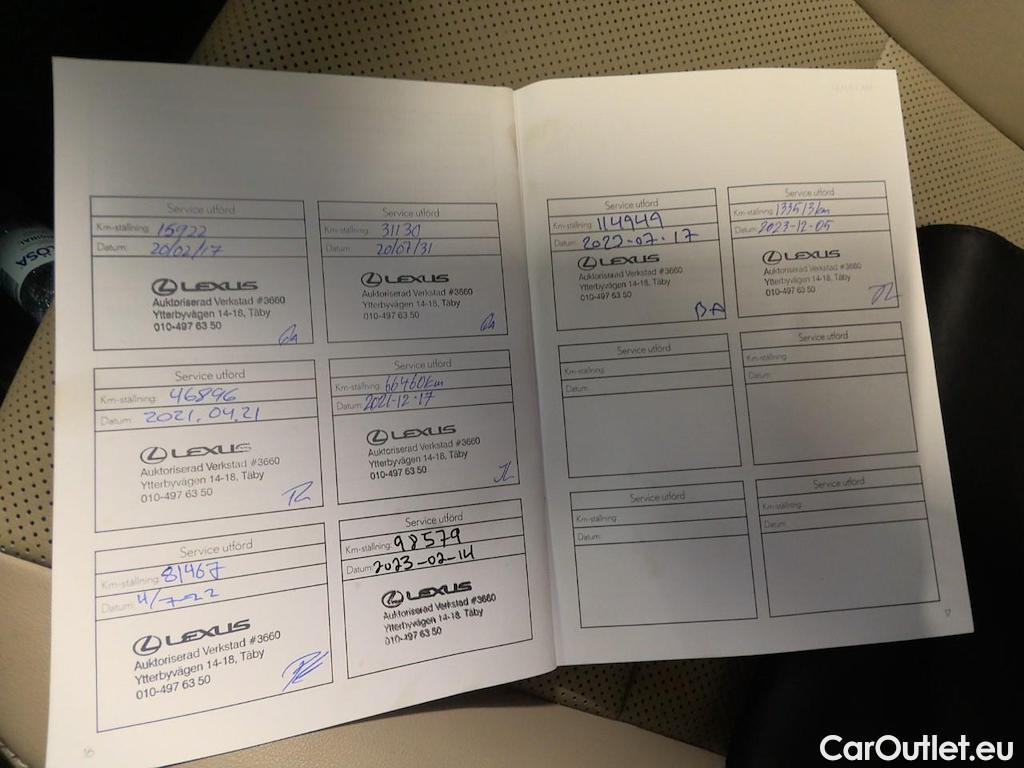 Service utförd
Km-ställning: 15922
Datum: 20/02/17
LEXUS
Auktoriserad Verkstad #3660
Ytterbyvägen 14-18, Täby
010-497 63 50
Service utförd
Km-ställning: 31130
Datum: 20/07/31
LEXUS
Auktoriserad Verkstad #3660
Ytterbyvägen 14-18, Täby
010-497 63 50
Service utförd
Km-ställning: 46896
Datum: 2021.04.21
LEXUS
Auktoriserad Verkstad #3660
Ytterbyvägen 14-18, Täby
010-497 63 50
Service utförd
Km-ställning: 66460km
Datum: 2021-12-17
LEXUS
Auktoriserad Verkstad #3660
Ytterbyvägen 14-18, Täby
010-497 63 50
JL
Service utförd
Km-ställning: 81467
Datum: 4/7-22
LEXUS
Auktoriserad Verkstad #3660
Ytterbyvägen 14-18, Täby
010-497 63 50
Service utförd
Km-ställning: 98579
Datum: 2023-02-14
LEXUS
Auktoriserad Verkstad #3660
Ytterbyvägen 14-18, Täby
010-497 63 50
16
Service utförd
Km-ställning: 114949
Datum: 2022-07-17
LEXUS
Auktoriserad Verkstad #3660
Ytterbyvägen 14-18, Täby
010-497 63 50
BA
Service utförd
Km-ställning: 133513km
Datum: 2023-12-05
LEXUS
Auktoriserad Verkstad #3660
Ytterbyvägen 14-18, Täby
010-497 63 50
JL
Service utförd
Km-ställning:
Datum:
Service utförd
Km-ställning:
Datum:
Service utförd
Km-ställning:
Datum:
Service utförd
Km-ställning:
Datum:
17
CarOutlet.eu